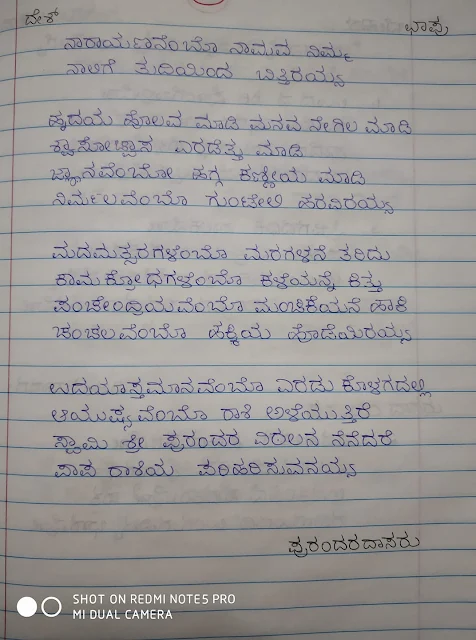 ದೇಶ್ ಭಾಪು
ನಾರಾಯಣನೆಂಬೊ ನಾಮವ ನಿಮ್ಮ
ನಾಲಿಗೆ ತುದಿಯಿಂದ ಬಿತ್ತಿರಯ್ಯ
ಹೃದಯ ಹೊಲವ ಮಾಡಿ ಮನವ ನೇಗಿಲ ಮಾಡಿ
ಶ್ವಾಸೋಚ್ಛ್ವಾಸ ಎರಡೆತ್ತು ಮಾಡಿ
ಜ್ಞಾನವೆಂಬೋ ಹಗ್ಗ ಕಣ್ಣಿಯ ಮಾಡಿ
ನಿರ್ಮಲವೆಂಬೊ ಗುಂಟೇಲಿ ಹರವಿರಯ್ಯ
ಮದಮತ್ಸರಗಳೆಂಬೊ ಮರಗಳನೆ ತರಿದು
ಕಾಮಕ್ರೋಧಗಳೆಂಬೊ ಕಳೆಯನ್ನೆ ಕಿತ್ತು
ಪಂಚೇಂದ್ರಿಯವೆಂಬೊ ಮಂಚಿಕೆಯನೆ ಹಾಕಿ
ಚಂಚಲವೆಂಬೊ ಹಕ್ಕಿಯ ಹೊಡೆಯಿರಯ್ಯ
ಉದಯಾಸ್ತಮಾನವೆಂಬೊ ಎರಡು ಕೊಳಗದಲ್ಲಿ
ಆಯುಷ್ಯವೆಂಬೊ ರಾಶಿ ಅಳೆಯುತ್ತಿರೆ
ಸ್ವಾಮಿ ಶ್ರೀ ಪುರಂದರ ವಿಠಲನ ನೆನೆದರೆ
ಪಾಪ ರಾಶಿಯ ಪರಿಹರಿಸುವನಯ್ಯ
ಪುರಂದರದಾಸರು
SHOT ON REDMI NOTE5 PRO
MI DUAL CAMERA